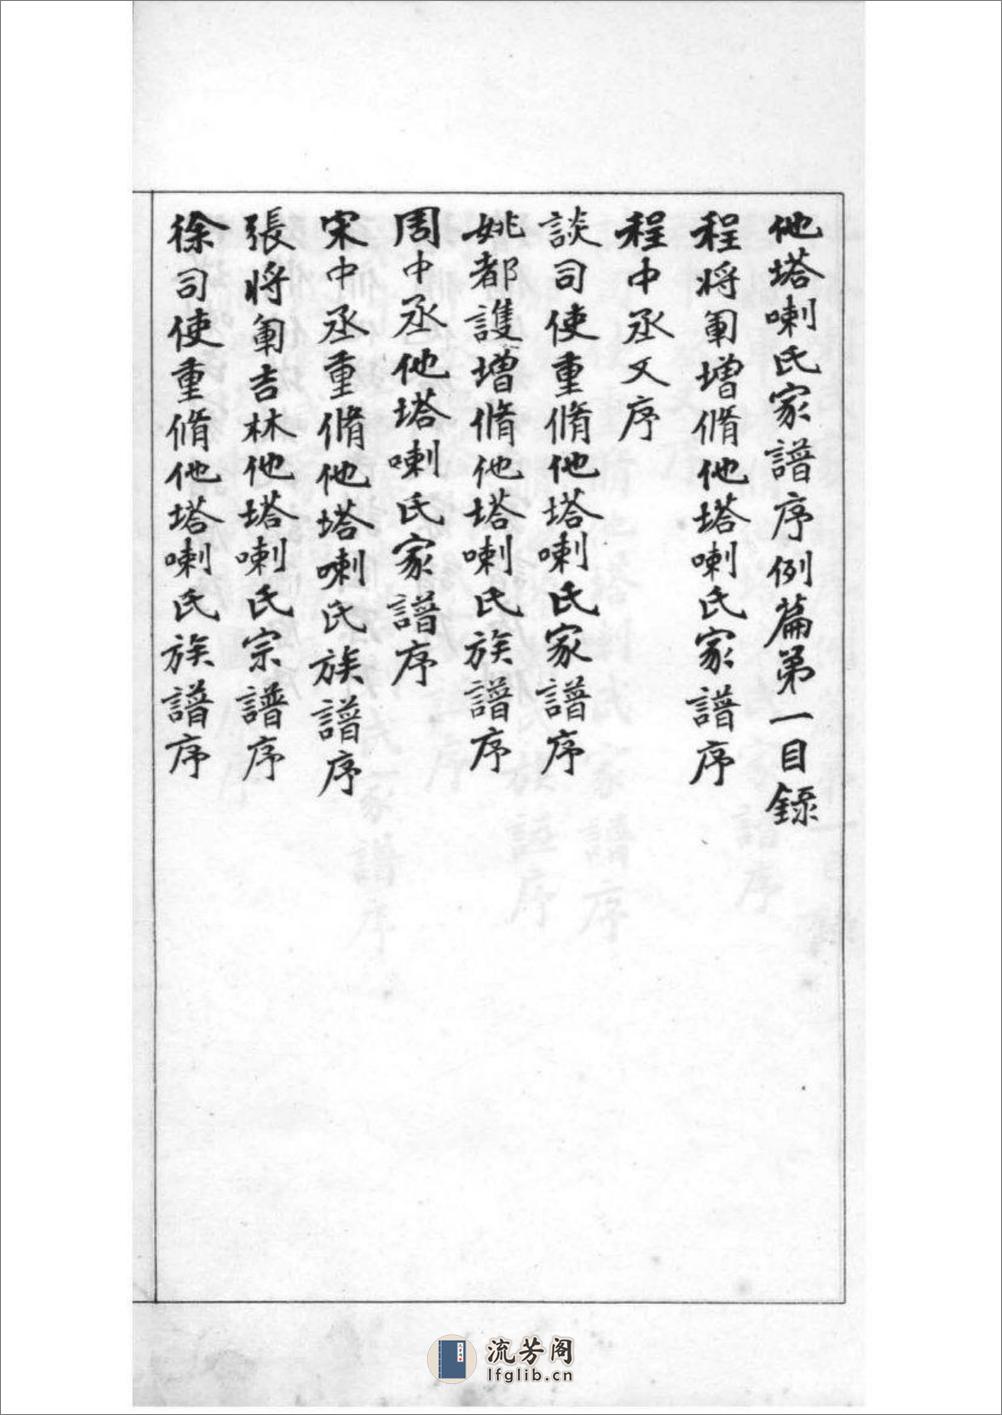 他塔喇氏家譜序例篇第一目錄
程將軍增脩他塔喇氏家譜序
程中丞又序
談司使重脩他塔喇氏家譜序
姚都護增脩他塔喇氏族譜序
周中丞他塔喇氏家譜序
宋中丞重脩他塔喇氏族譜序
張將軍吉林他塔喇氏宗譜序
徐司使重脩他塔喇氏族譜序
流芳阁
lfglib.cn